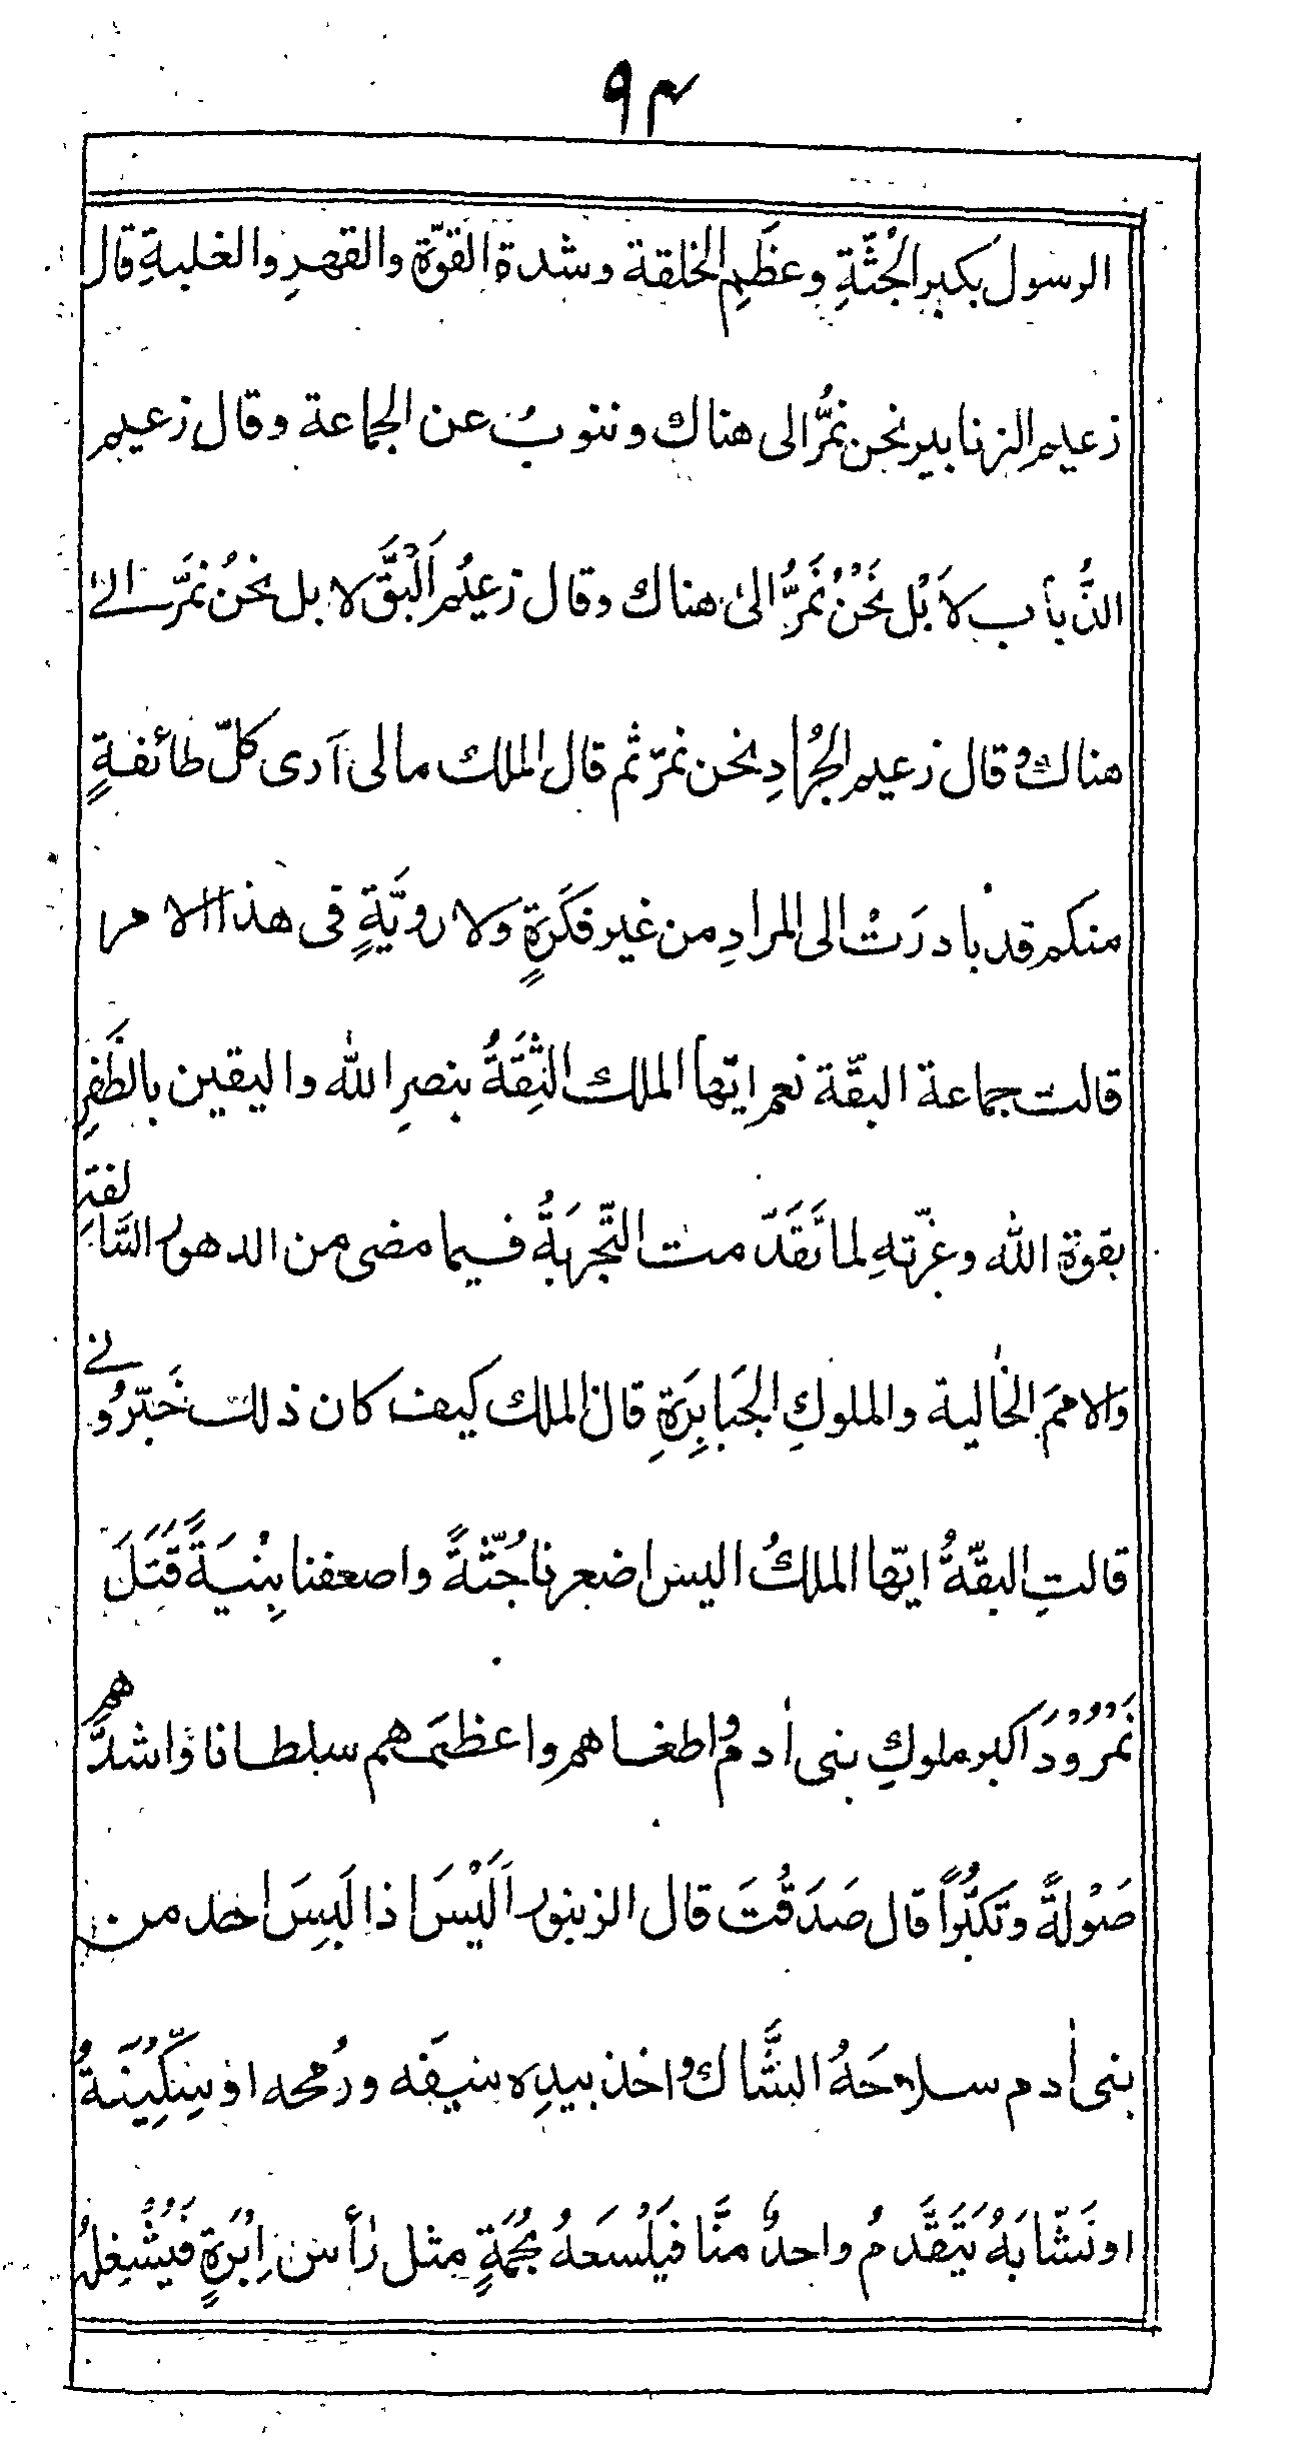 ٩٣
الرسول بكبر الجُثَّةِ وعظَمِ الخلقة وشدة القوّة والقهرِ والغلبةِ قال
زعيم الزنابير نحن نمُرُّ الى هناك وننوبُ عن الجماعة وقال زعيم
الذُّباب لا بَلْ نَحْنُ نَمُرُّ الىٰ هناك وقال زعيُم اَلْبَقَّ لا بل نحنُ نمَرُّ الىٰ
هناك وقال زعيم الجُرادِ نحن نمرّ ثم قال الملك مالى اَرى كلّ طائفةٍ
منكم قد بادرَتْ الى المرادِ من غير فكَرَةٍ ولا رويَّةٍ فى هذا الامر
قالت جماعة البقّة نعم ايّها الملك الثِقَةُ بنصرِ الله واليقين بالظَفَرِ
بقوة الله وعزّتهِ لما تَقَدّمت التّجربَةُ فيما مضى من الدهور السَّالفة
وَالاممَ الخالية والملوكِ الجَبابِرَةِ قال الملك كيف كان ذلك خَبّرُونى
قالتِ البقّةُ ايّها الملكُ اليس اضعرنا جُثّةً واصعفنا بِنْيَةً قَتَلَ
نَمْرُوْدَ اكبر ملوكِ بنى اٰدم واطغاهم واعظمَهم سلطانا واشدَّهم
صَوْلةً وتَكَبُّراً قال صَدَقْتَ قال الزنبور اَلَيْسَ اذا لَبِسَ احد من
بنى اٰدم سلاحَهُ الشَّاك واخذ بيدِه سيفَه ورُمحه او سِكِّيْنَهُ
او نَشّابَهُ يَتَقَدَّمُ واحدٌ منَّا فَيَلْسَعهُ بحُمَةٍ مثل رأس اِبْرَةٍ فَيُشْغِلُ